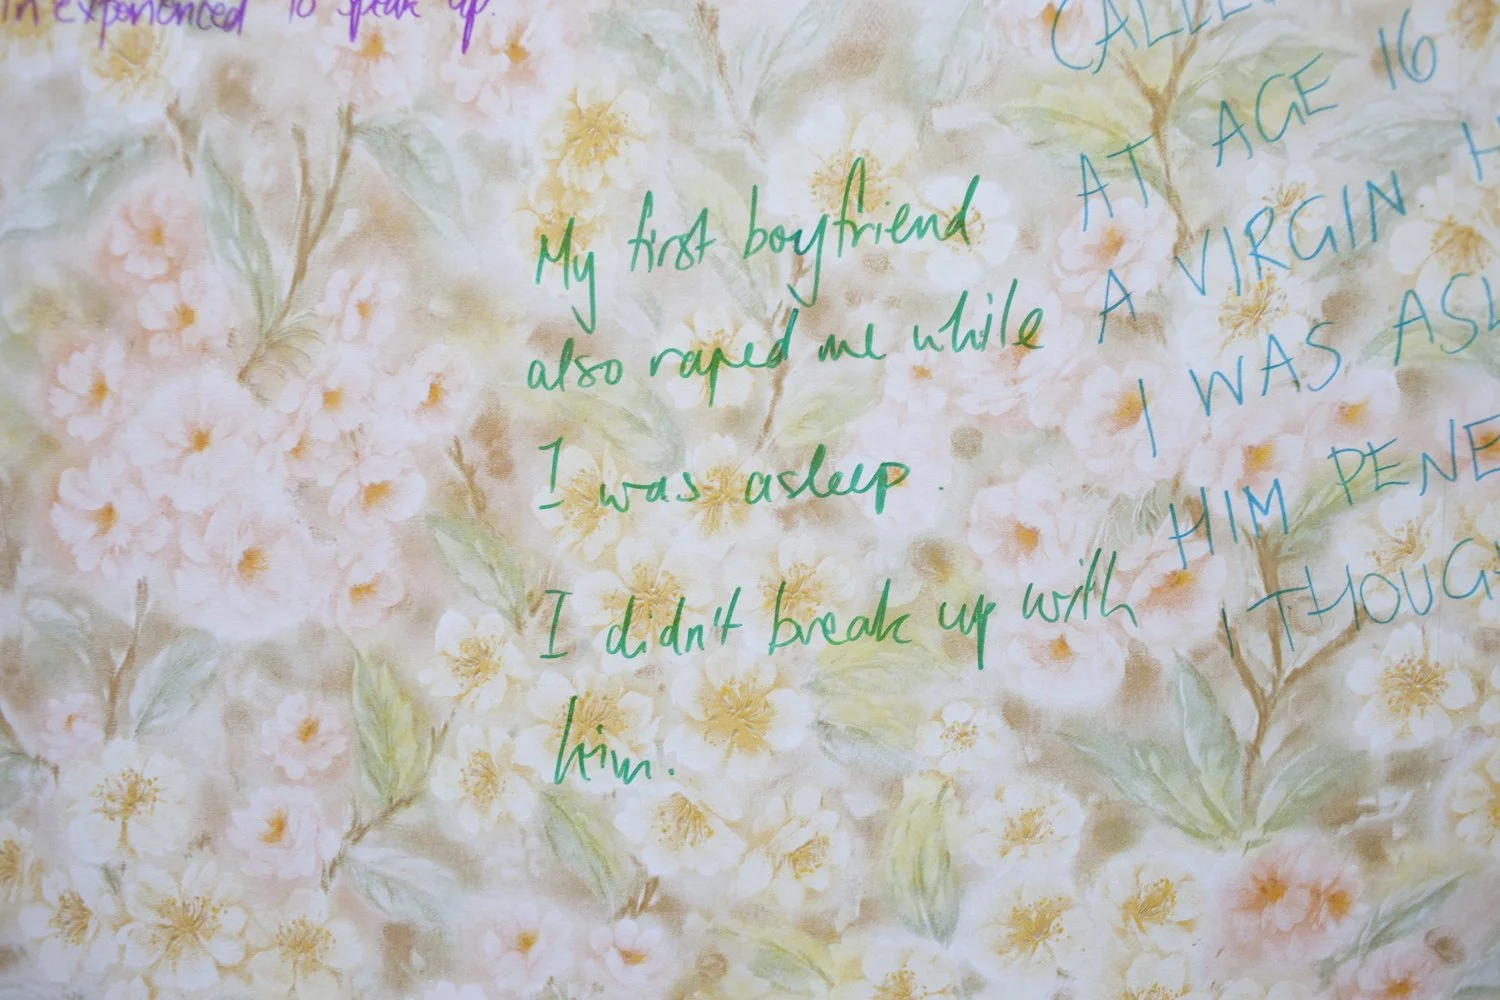 inexperienced to speak up.
My first boyfriend
also raped me while
I was asleep.
I didn't break up with
him.
AT AGE 16
A VIRGIN.
I WAS
HIM
I